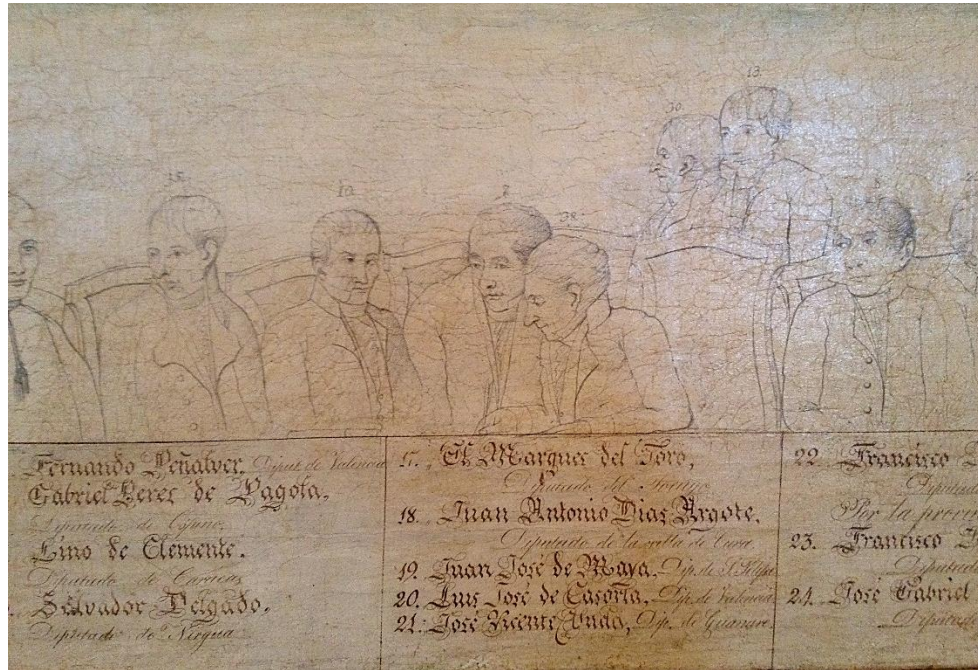 13.
30.
15.
10.
8.
38.
5.
Fernando Peñalver. Diput. de Valencia
Gabriel Perez de Pagola.
Diputado de Ospino.
Lino de Clemente.
Diputado de Caracas
Salvador Delgado.
Diputado de Nirgua.
17. El Marques del Toro,
Diputado del Tocuyo
18. Juan Antonio Dias Argote.
Diputado de la villa de Cura.
19. Juan José de Maya. Dip. de S. Felipe
20. Luis José de Casorla. Dip. de Valencia
21. José Vicente Unda, Dip. de Guanare.
22. Francisco
Diputado
Por la provi
23. Francisco
Diputado
24. José Gabriel
Diputado